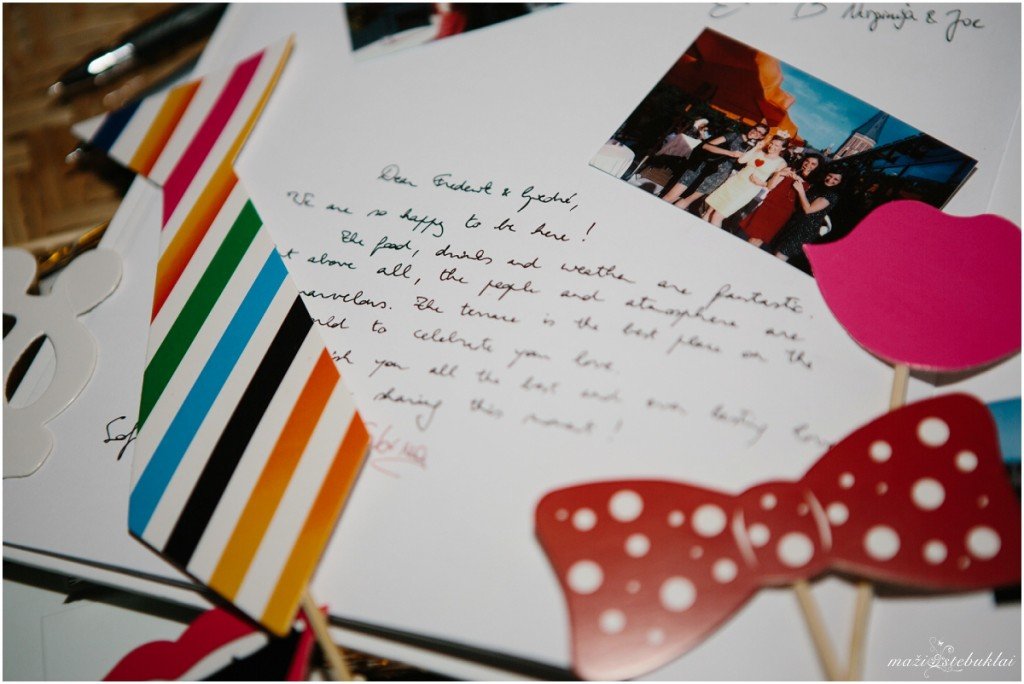 & Joe
Dear Frederik & Giedrė,
We are so happy to be here!
The food, drinks and weather are fantastic.
above all, the people and atmosphere are
marvelous. The terrace is the best place on the
to celebrate you love.
you all the best and ever lasting love
sharing this moment!
maži stebuklai